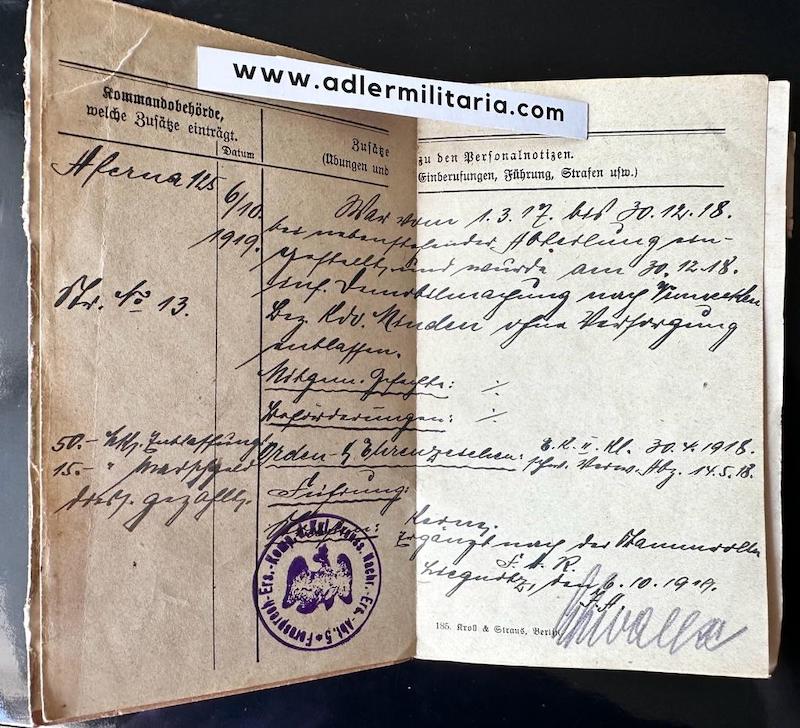 www.adlermilitaria.com
Kommandobehörde,
welche Zusätze einträgt.
Datum
Zusätze
(Übungen und
zu den Personalnotizen.
Einberufungen, Führung, Strafen usw.)
Aferna 125
6/10
1919.
Str. No 13.
50.- Mk. Entlassungs
15.- " Marschgeld
gezahlt.
War vom 1.3.17. bis 30.12.18.
bei nebenstehender Abteilung ein-
gestellt und wurde am 30.12.18.
inf. Demobilmachung nach
Bez. Kdo. Minden ohne Versorgung
entlassen.
Mitgem. Gefechte: ./.
Beförderungen: ./.
Orden- & Ehrenzeichen: E.K. II. Kl. 30.4.1918.
schw. Verw. Abz. 14.5.18.
Führung:
Strafen: Keine.
Ergänzt nach der Stammrolle
Liegnitz, den 6.10.1919.
Fernsprech-Ers.-Komp. d. Kgl. Preuss. Nachr.-Ers.-Abt. 5
185. Kroll & Straus, Berlin